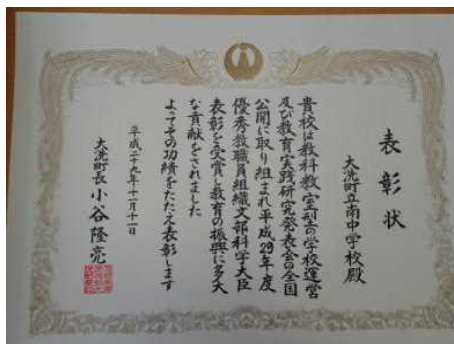 表彰状
大洗町立南中学校殿
貴校は教科教室型の学校運営
及び教育実践研究発表会の全国
公開に取り組まれ平成29年度
優秀教職員組織文部科学大臣
表彰を受賞し教育の振興に多大
な貢献をされました
よってその功績をたたえ表彰します
平成二十九年十一月十一日
大洗町長 小谷隆亮